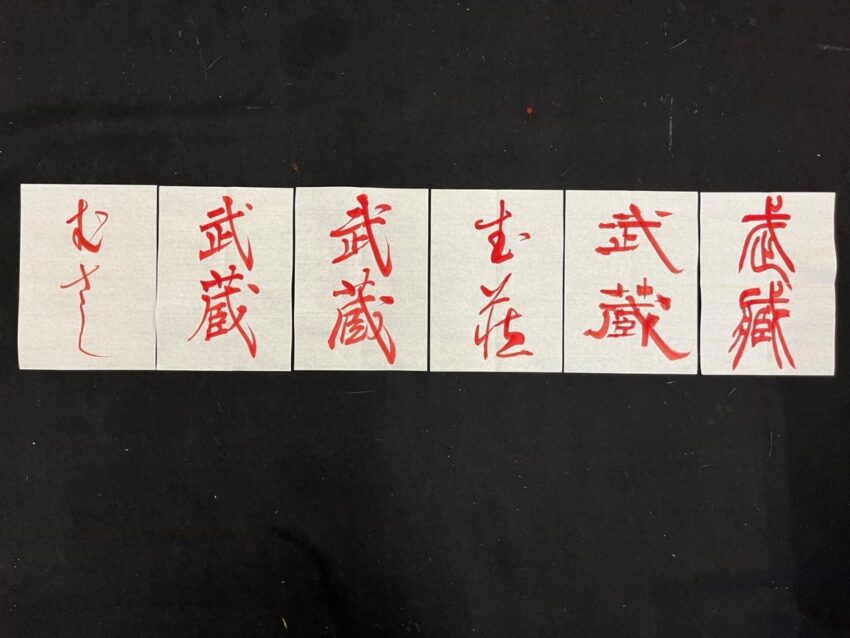 むさし
武蔵
武蔵
武蔵
武蔵
武蔵